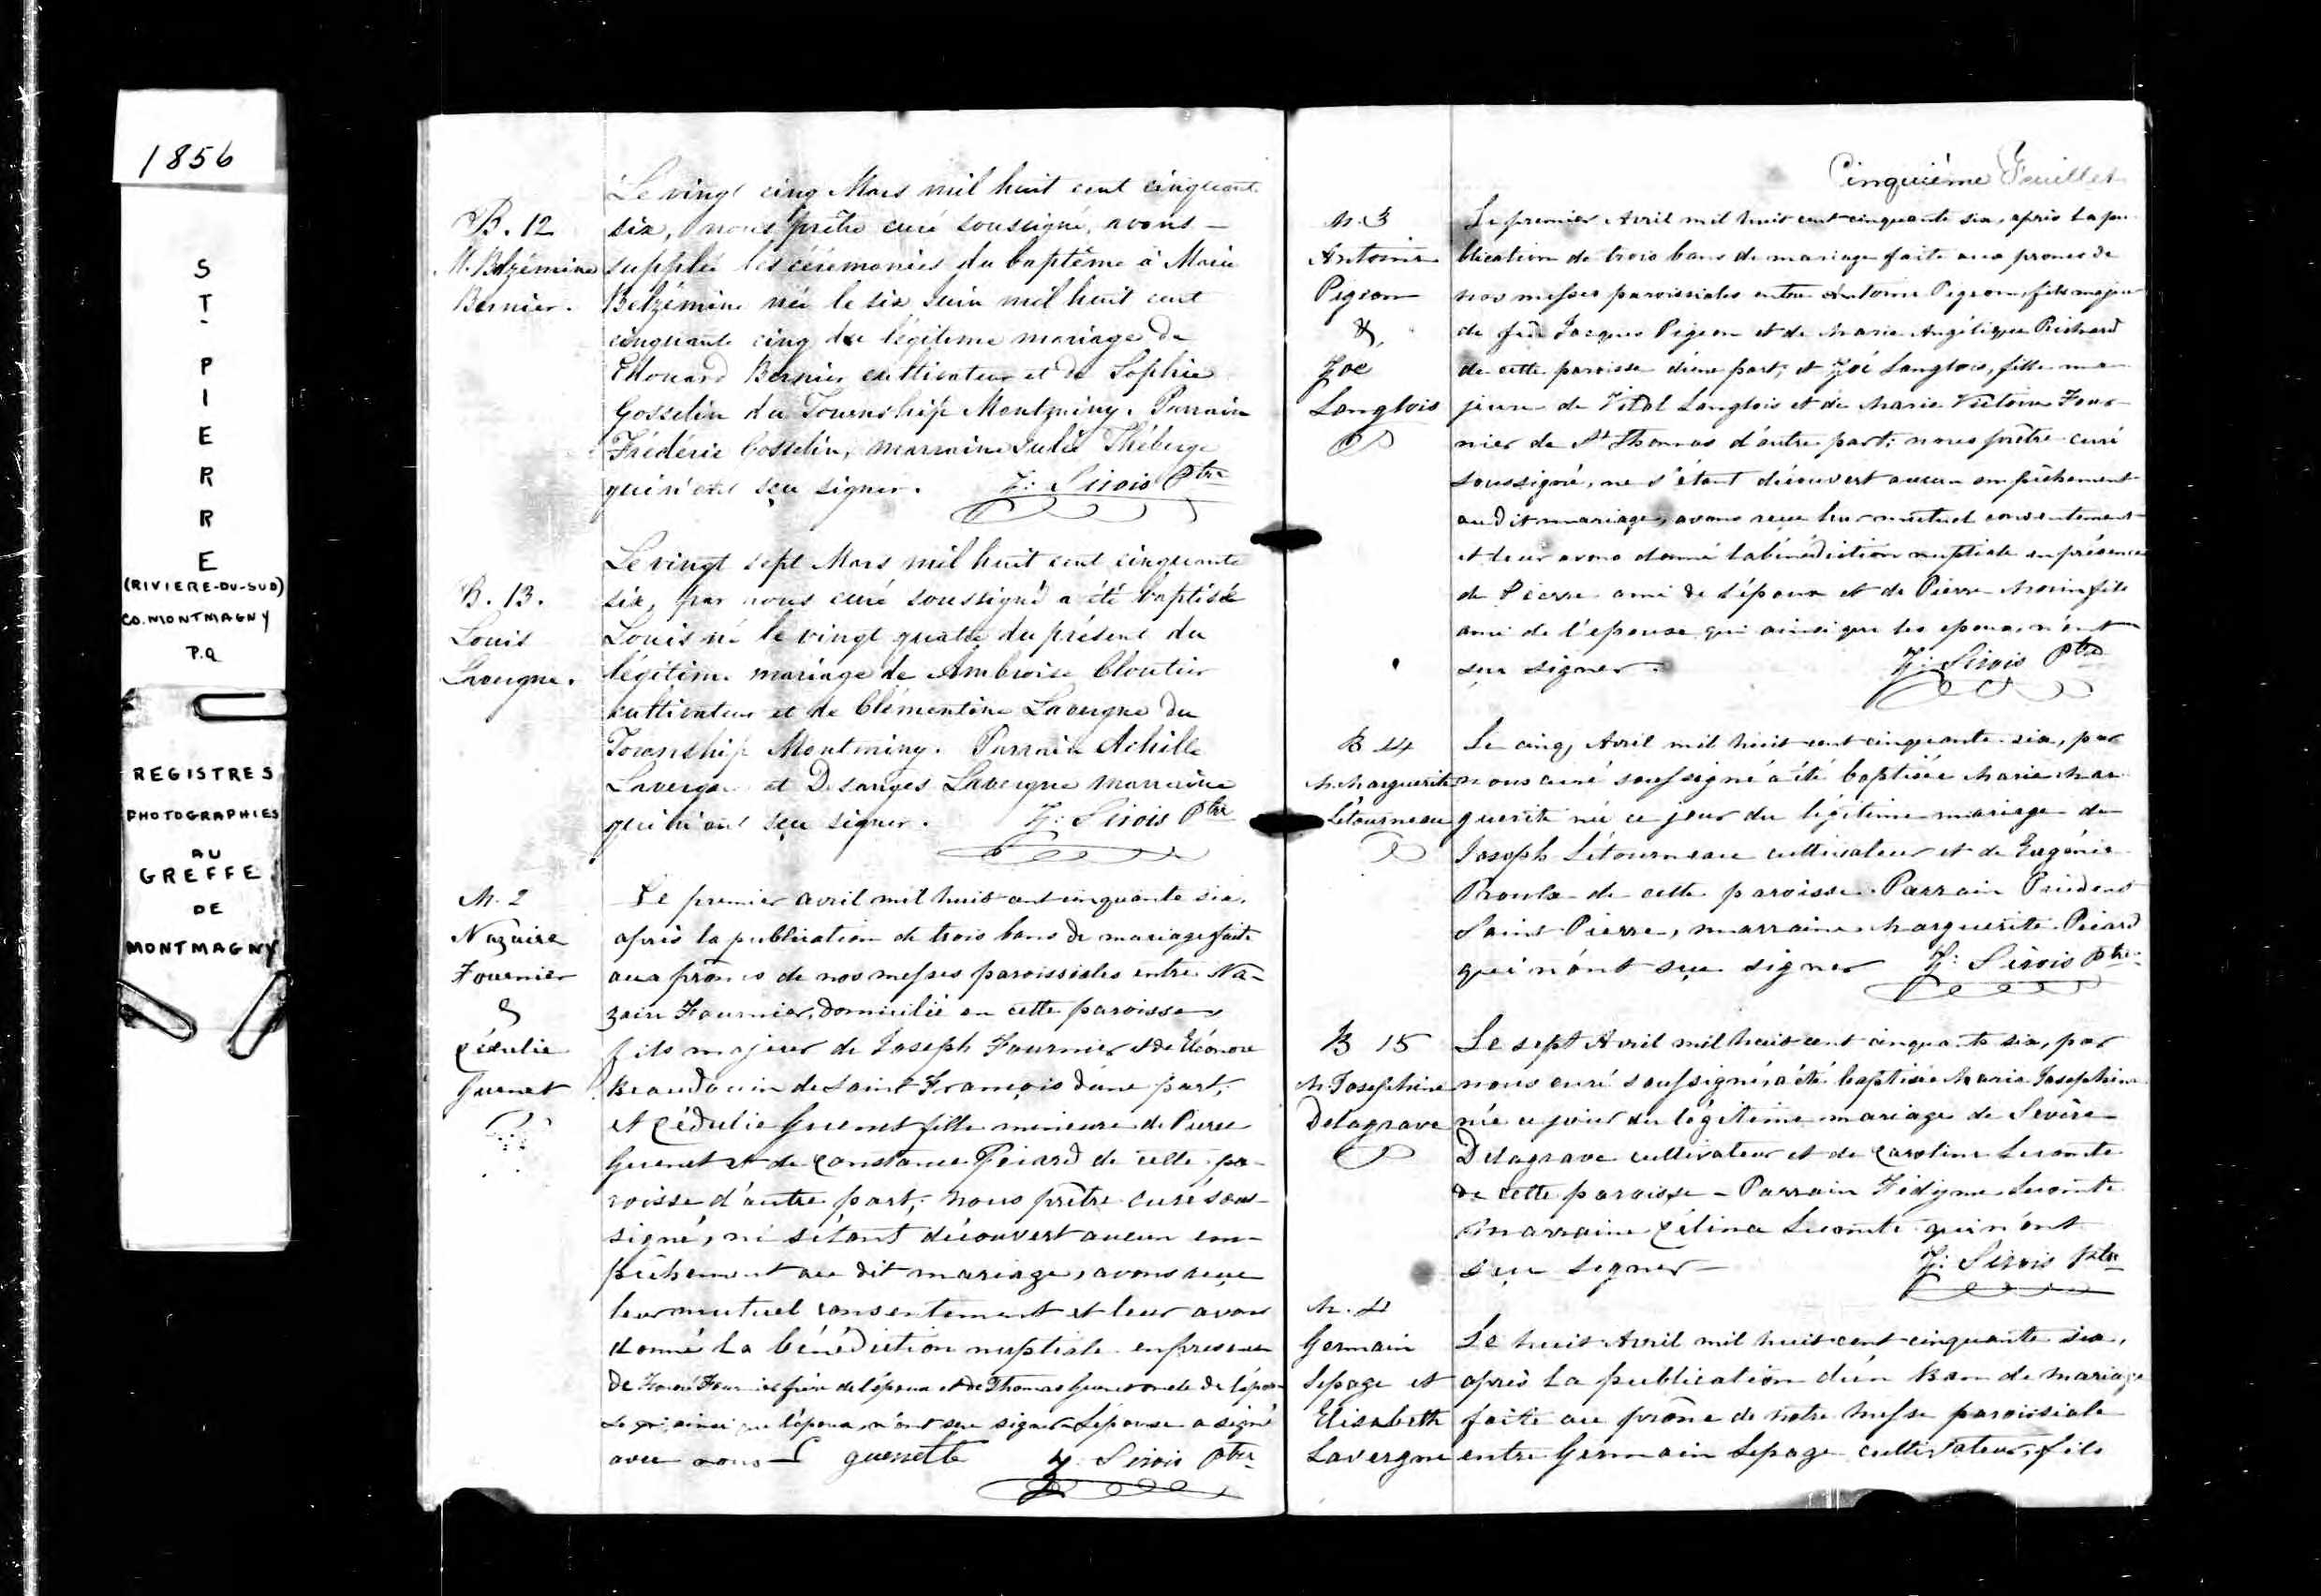 1856
ST-PIERRE
(RIVIERE-DU-SUD)
CO. MONTMAGNY
P.Q
REGISTRES
PHOTOGRAPHIES
AU
GREFFE
DE
MONTMAGNY
B. 12
M. Belzémine
Bernier.
Le vingt cinq Mars mil huit cent cinquante
six, nous prêtre curé soussigné, avons
supplée les cérémonies du baptême à Marie
Belzémine née le six Juin mil huit cent
cinquante cinq du légitime mariage de
Edouard Bernier cultivateur et de Sophie
Gosselin du Township Montminy. Parrain
Frédéric Gosselin, marraine Julie Théberge
qui n'ont sçu signer. Z: Sirois Ptre
B. 13.
Louis
Lavergne.
Le vingt sept Mars mil huit cent cinquante
six, par nous curé soussigné a été baptisé
Louis né le vingt quatre du présent du
légitime mariage de Ambroise Cloutier
cultivateur et de Clémentine Lavergne du
Township Montminy. Parrain Achille
Lavergne et Desanges Lavergne marraine
qui n'ont sçu signer. Z: Sirois Ptre
M. 2
Nazaire
Fournier
&
Cédulie
Guenet
Le premier avril mil huit cent cinquante six,
après la publication de trois bans de mariage faite
aux prônes de nos messes paroissiales entre Na-
zaire Fournier, domicilié en cette paroisse,
fils majeur de Joseph Fournier et de Eléonore
Beaudouin de Saint François d'une part;
et Cédulie Guenet fille mineure de Pierre
Guenet et de Constance Picard de cette pa-
roisse d'autre part; nous prêtre curé sous-
signé, ne s'étant découvert aucun em-
pêchement au dit mariage, avons reçu
leur mutuel consentement et leur avons
donné la bénédiction nuptiale en présence
de Fournier frère de l'époux et de Thomas Guenet oncle de l'épou-
se qui ainsi que l'époux, n'ont sçu signer. L'épouse a signé
avec nous - C guenette Z. Sirois Ptre
Cinquième Feuillet
M. 3
Antoine
Pigeon
&
Zoé
Langlois
Le premier Avril mil huit cent cinquante six, après la pu-
blication de trois bans de mariage faite aux prones de
nos messes paroissiales entre Antoine Pigeon, fils majeur
de feu Jacques Pigeon et de Marie Angélique Richard
de cette paroisse d'une part; et Zoé Langlois, fille ma-
jeure de Vital Langlois et de Marie Victoire Four-
nier de St Thomas d'autre part; nous prêtre curé
soussigné, ne s'étant découvert aucun empêchement
au dit mariage, avons reçu leur mutuel consentement
et leur avons donné la bénédiction nuptiale en présence
de Pierre ami de l'époux et de Pierre Morin fils
ami de l'epouse qui ainsi que les epoux, n'ont
sçu signer. Z: Sirois Ptre
B 14
M. Marguerite
Létourneau
Le cinq, Avril mil huit cent cinquante six, par
nous curé soussigné a été baptisée Marie Mar-
guerite née ce jour du légitime mariage de
Joseph Létourneau cultivateur et de Eugénie
Proulx de cette paroisse. Parrain Prudent
Saint Pierre, marraine Marguerite Picard
qui n'ont sçu signer Z: Sirois Ptre
B 15
M. Josephine
Delagrave
Le sept Avril mil huit cent cinquante six, par
nous curé soussigné a été baptisée Marie Josephine
née ce jour du légitime mariage de Sevère
Delagrave cultivateur et de Caroline Lecomte
de cette paroisse - Parrain Lecomte
Marraine Célina Lecomte qui n'ont
sçu signer - Z: Sirois Ptre
M. 4
Germain
Lepage et
Elisabeth
Lavergne
Le huit Avril mil huit cent cinquante six,
après la publication d'un Ban de mariage
faite au prône de notre messe paroissiale
entre Germain Lepage cultivateur, fils